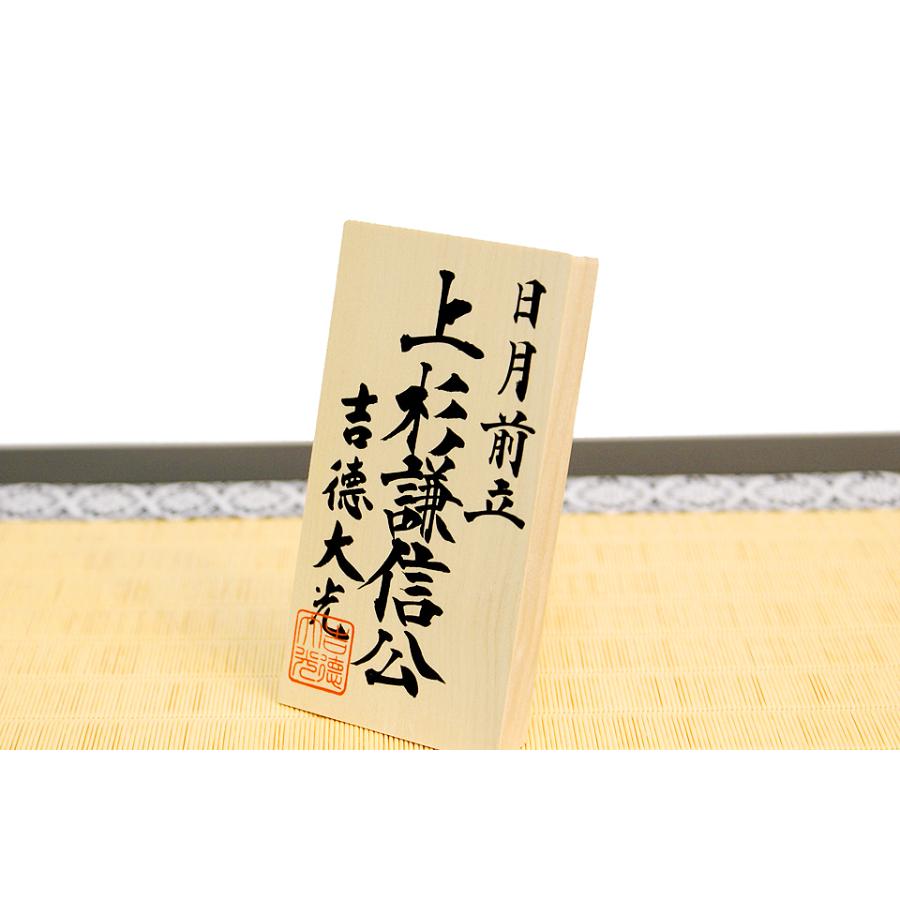 日月前立
上杉謙信公
吉德大光
吉德大光